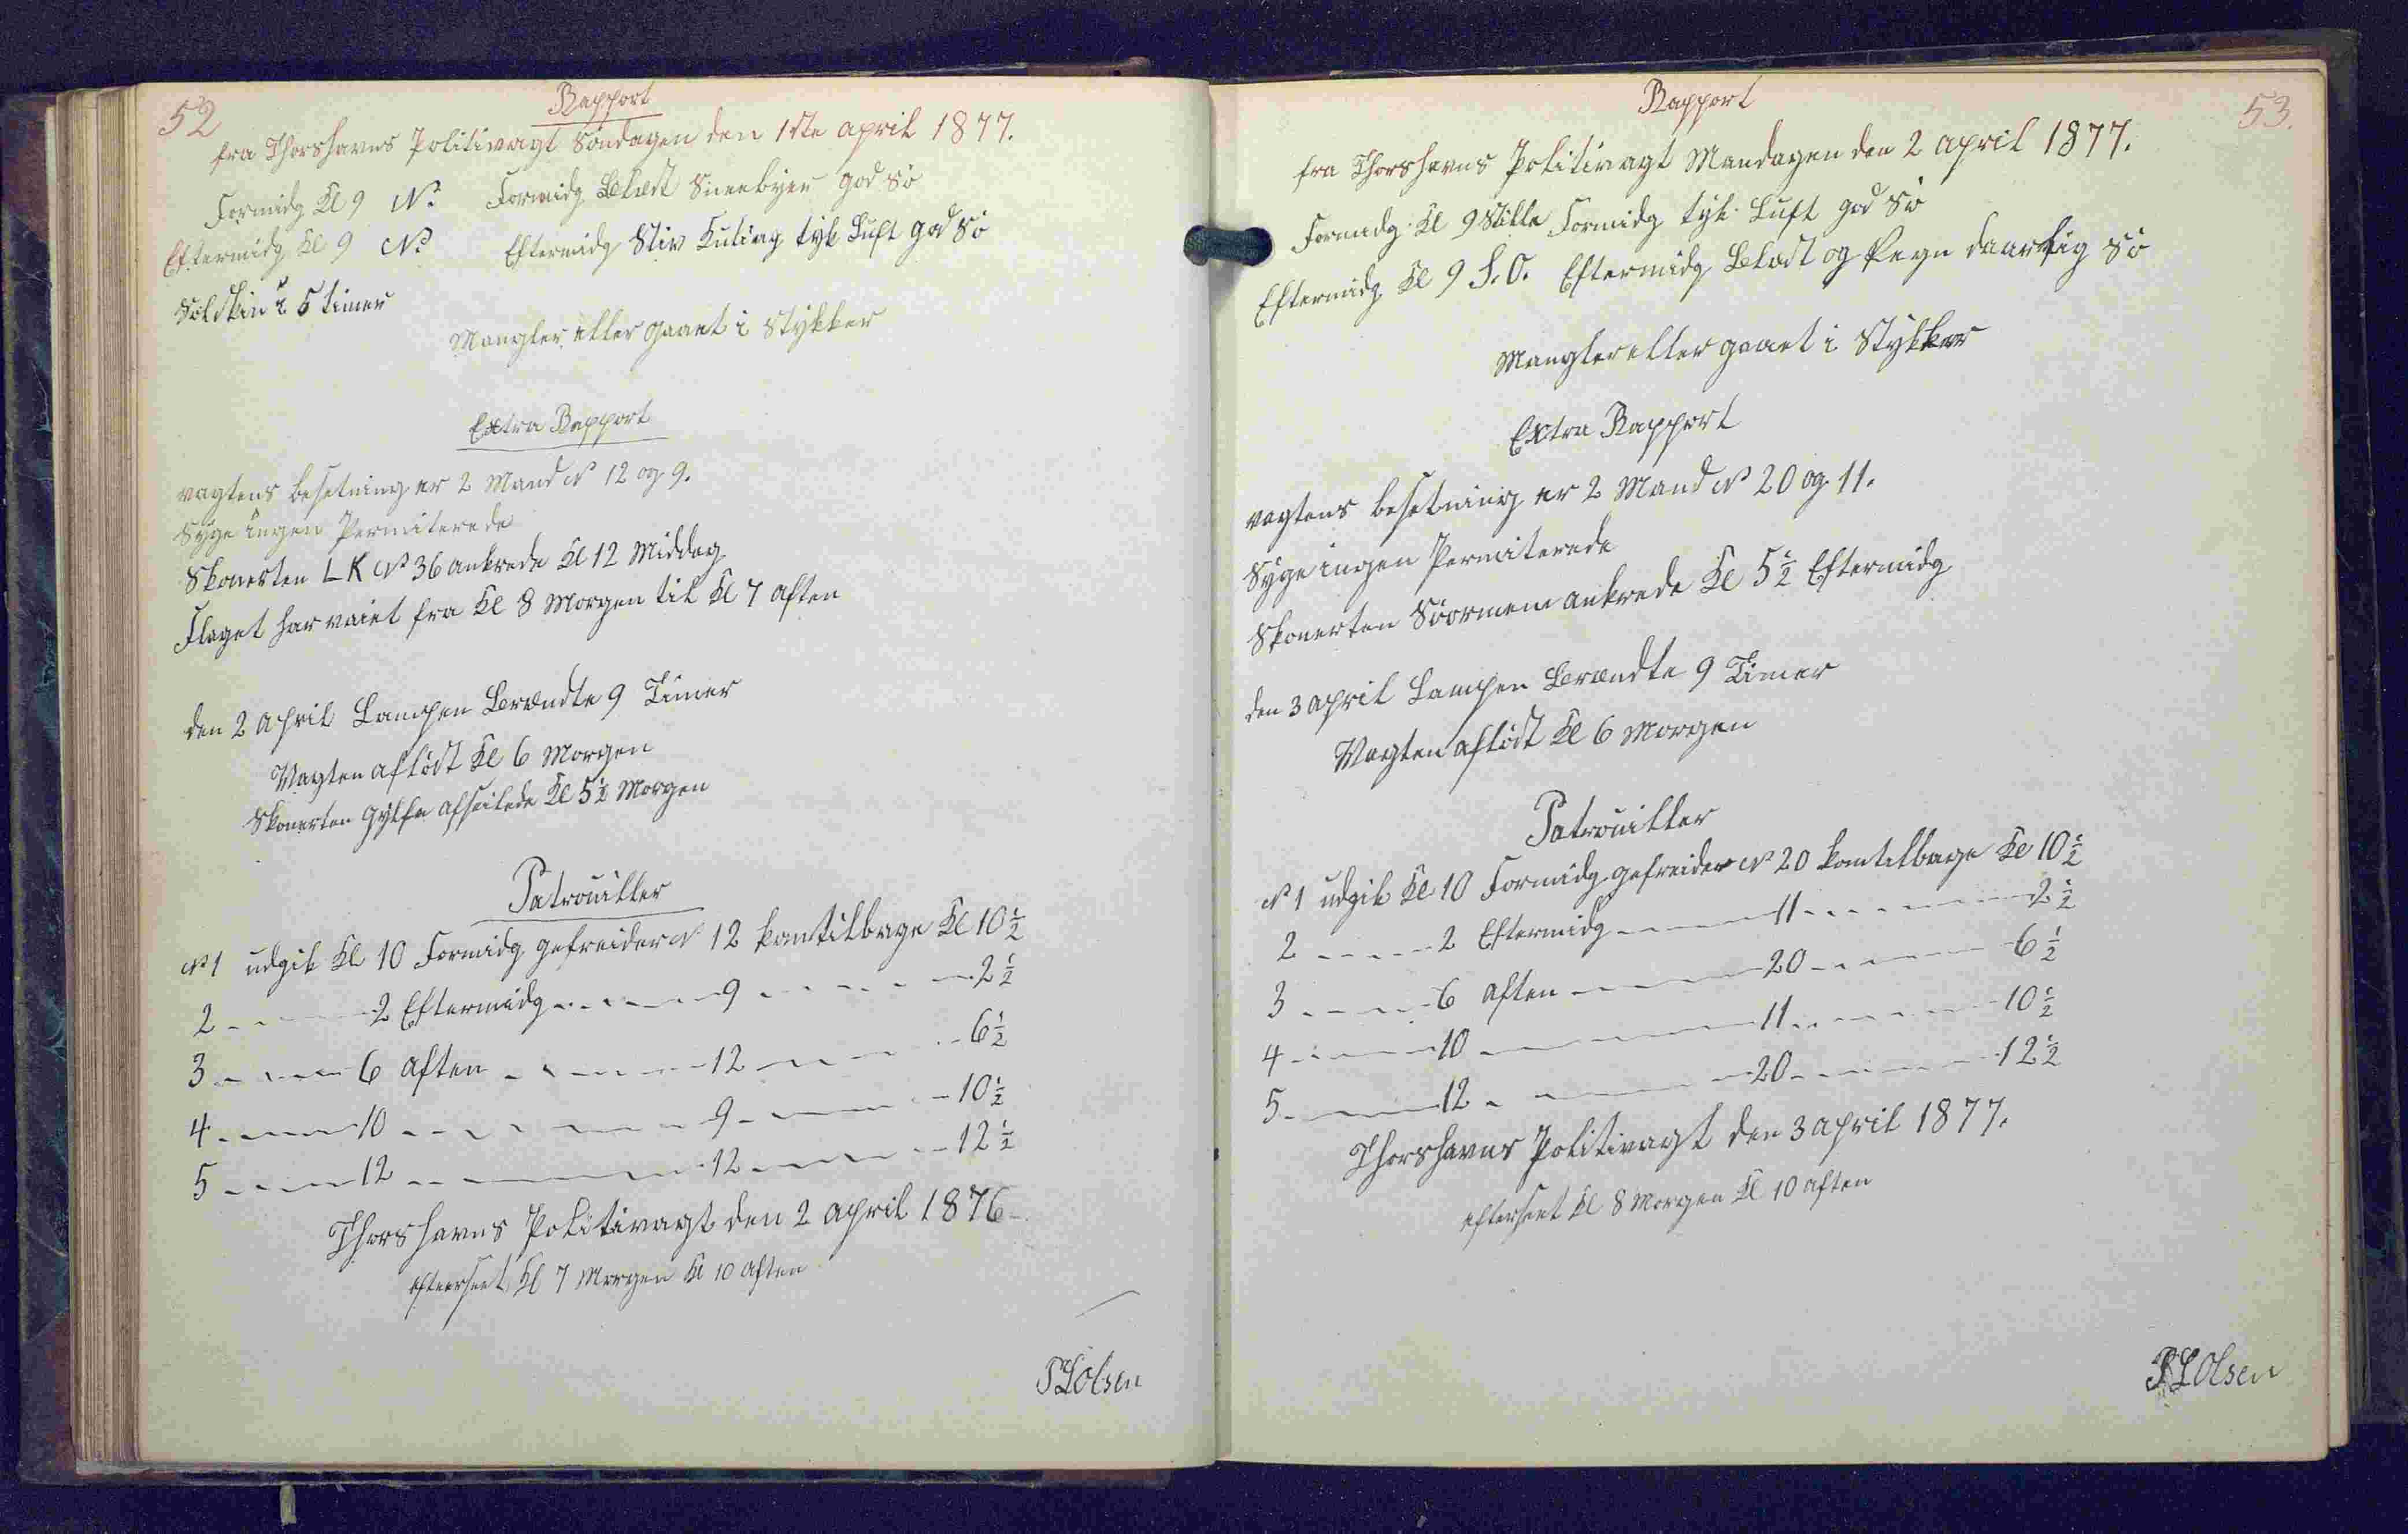 52
Rapport
fra Thorshavns Politivagt Söndagen den 1ste april 1877.
Formidg Kl 9 N. Formidg Blæst Sneebyer god Sö
Eftermidg Kl 9 N. Eftermidg Stiv Kuling tyk Luft god Sö
Solskin i 5 timer
Mangler eller gaaet i Stykker
Extra Rapport
vagtens besetning er 2 Mand No 12 og 9.
Syge ingen Permiterede
Skonerten LK No 36 ankrede Kl 12 Middag
Flaget har vaiet fra Kl 8 Morgen til Kl 7 aften
den 2 April Lampen Brændte 9 Timer
Vagten aflöst Kl 6 Morgen
Skonerten Gylfe afseilede Kl 5½ Morgen
Patrouiller
No 1 udgik Kl 10 Formidg gefreider No 12 kom tilbage Kl 10½
2 2 Eftermidg 9 2½
3 6 aften 12 6½
4 10 9 10½
5 12 12 12½
Thorshavns Politivagt den 2 april 1876
efterseet Kl 7 Morgen Kl 10 aften
PLOlsen
53.
Rapport
fra Thorshavns Politivagt Mandagen den 2 april 1877.
Formidg Kl 9 Stille Formidg tyk Luft god Sö
Eftermidg Kl 9 S.O. Eftermidg Blæst og Regn daarlig Sö
Mangler eller gaaet i Stykker
Extra Rapport
vagtens besetning er 2 Mand No 20 og 11.
Syge ingen Permiterede
Skonerten Söormen ankrede Kl 5½ Eftermidg
den 3 april Lampen Brændte 9 Timer
Vagten aflöst Kl 6 Morgen
Patrouiller
No 1 udgik Kl 10 Formidg gefreider No 20 kom tilbage Kl 10½
2 2 Eftermidg 11 2½
3 6 aften 20 6½
4 10 11 10½
5 12 20 12½
Thorshavns Politivagt den 3 april 1877.
efterseet Kl 8 Morgen Kl 10 aften
PLOlsen